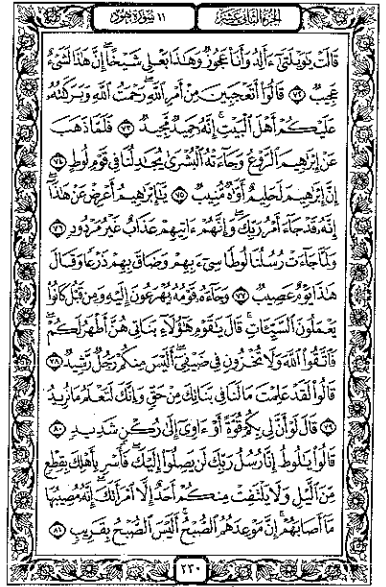 الجزء الثاني عشر
١١ سورة هود
قَالَتْ يَٰوَيْلَتَىٰٓ ءَأَلِدُ وَأَنَا۠ عَجُوزٌ وَهَٰذَا بَعْلِى شَيْخًا إِنَّ هَٰذَا لَشَىْءٌ
عَجِيبٌ ٧٢ قَالُوٓا۟ أَتَعْجَبِينَ مِنْ أَمْرِ ٱللَّهِ رَحْمَتُ ٱللَّهِ وَبَرَكَٰتُهُۥ
عَلَيْكُمْ أَهْلَ ٱلْبَيْتِ إِنَّهُۥ حَمِيدٌ مَّجِيدٌ ٧٣ فَلَمَّا ذَهَبَ
عَنْ إِبْرَٰهِيمَ ٱلرَّوْعُ وَجَآءَتْهُ ٱلْبُشْرَىٰ يُجَٰدِلُنَا فِى قَوْمِ لُوطٍ ٧٤
إِنَّ إِبْرَٰهِيمَ لَحَلِيمٌ أَوَّٰهٌ مُّنِيبٌ ٧٥ يَٰٓإِبْرَٰهِيمُ أَعْرِضْ عَنْ هَٰذَآ
إِنَّهُۥ قَدْ جَآءَ أَمْرُ رَبِّكَ وَإِنَّهُمْ ءَاتِيهِمْ عَذَابٌ غَيْرُ مَرْدُودٍ ٧٦
وَلَمَّا جَآءَتْ رُسُلُنَا لُوطًا سِىٓءَ بِهِمْ وَضَاقَ بِهِمْ ذَرْعًا وَقَالَ
هَٰذَا يَوْمٌ عَصِيبٌ ٧٧ وَجَآءَهُۥ قَوْمُهُۥ يُهْرَعُونَ إِلَيْهِ وَمِن قَبْلُ كَانُوا۟
يَعْمَلُونَ ٱلسَّيِّـَٔاتِ قَالَ يَٰقَوْمِ هَٰٓؤُلَآءِ بَنَاتِى هُنَّ أَطْهَرُ لَكُمْ
فَٱتَّقُوا۟ ٱللَّهَ وَلَا تُخْزُونِ فِى ضَيْفِىٓ أَلَيْسَ مِنكُمْ رَجُلٌ رَّشِيدٌ ٧٨
قَالُوا۟ لَقَدْ عَلِمْتَ مَا لَنَا فِى بَنَاتِكَ مِنْ حَقٍّ وَإِنَّكَ لَتَعْلَمُ مَا نُرِيدُ
٧٩ قَالَ لَوْ أَنَّ لِى بِكُمْ قُوَّةً أَوْ ءَاوِىٓ إِلَىٰ رُكْنٍ شَدِيدٍ ٨٠
قَالُوا۟ يَٰلُوطُ إِنَّا رُسُلُ رَبِّكَ لَن يَصِلُوٓا۟ إِلَيْكَ فَأَسْرِ بِأَهْلِكَ بِقِطْعٍ
مِّنَ ٱلَّيْلِ وَلَا يَلْتَفِتْ مِنكُمْ أَحَدٌ إِلَّا ٱمْرَأَتَكَ إِنَّهُۥ مُصِيبُهَا
مَآ أَصَابَهُمْ إِنَّ مَوْعِدَهُمُ ٱلصُّبْحُ أَلَيْسَ ٱلصُّبْحُ بِقَرِيبٍ ٨١
٢٣٠